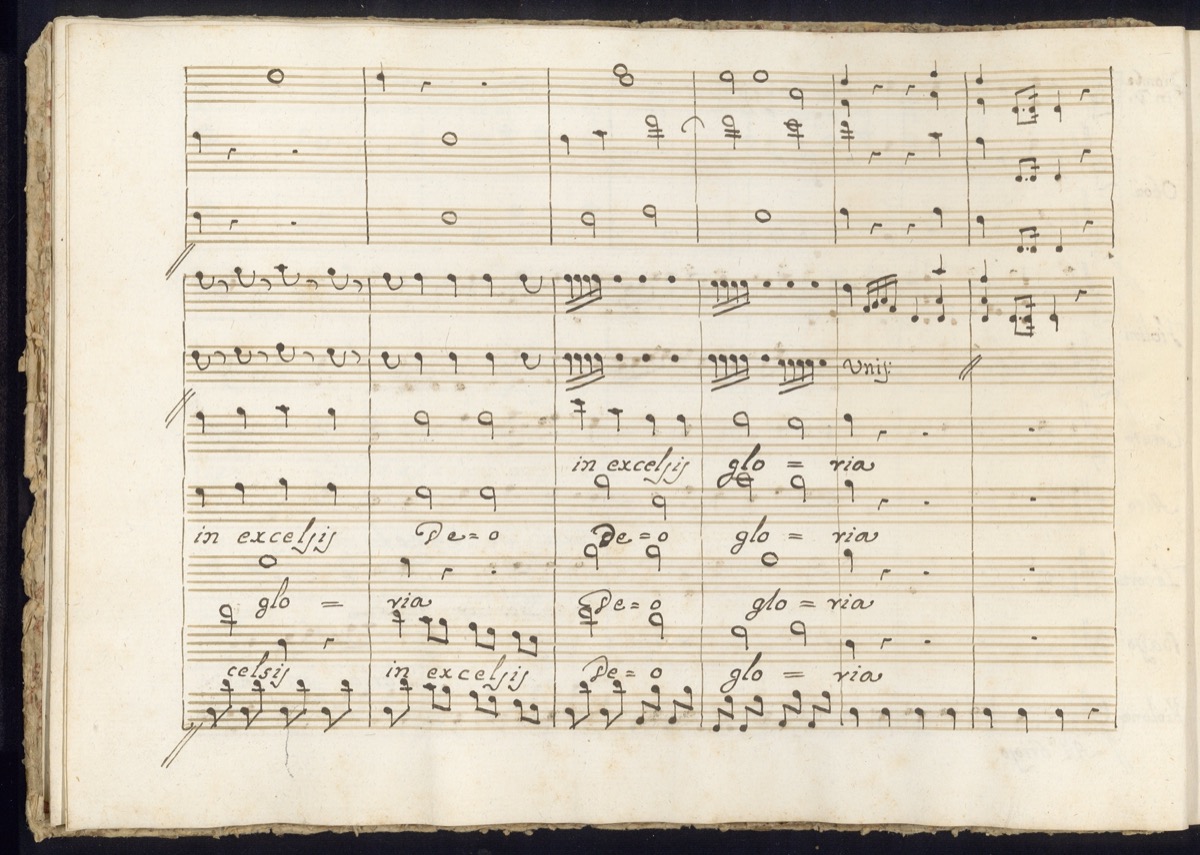 Unis:
in excelsis glo = ria
in excelsis De = o De = o glo = ria
glo = ria De = o glo = ria
celsis in excelsis De = o glo = ria